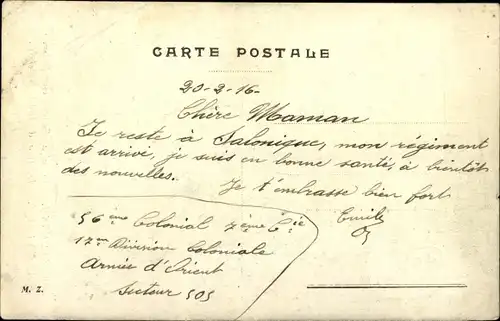 CARTE POSTALE
20-2-16-
Chère Maman
Je reste à Salonique, mon régiment
est arrivé, je suis en bonne santé, à bientôt
des nouvelles.
Je t'embrasse bien fort
Emile
56ème Colonial 7ème Cie
17me Division Coloniale
Armée d'Orient
Secteur 505
M. Z.